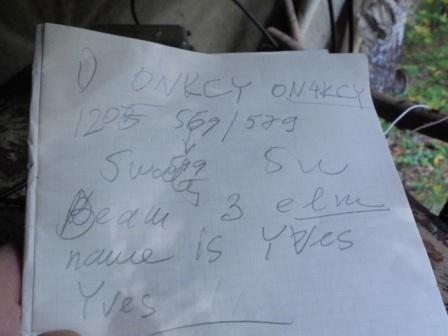 1) ONKCY ON4KCY
1205 569/579
5w 599 5w
Beam 3 elm
name is Yves
Yves